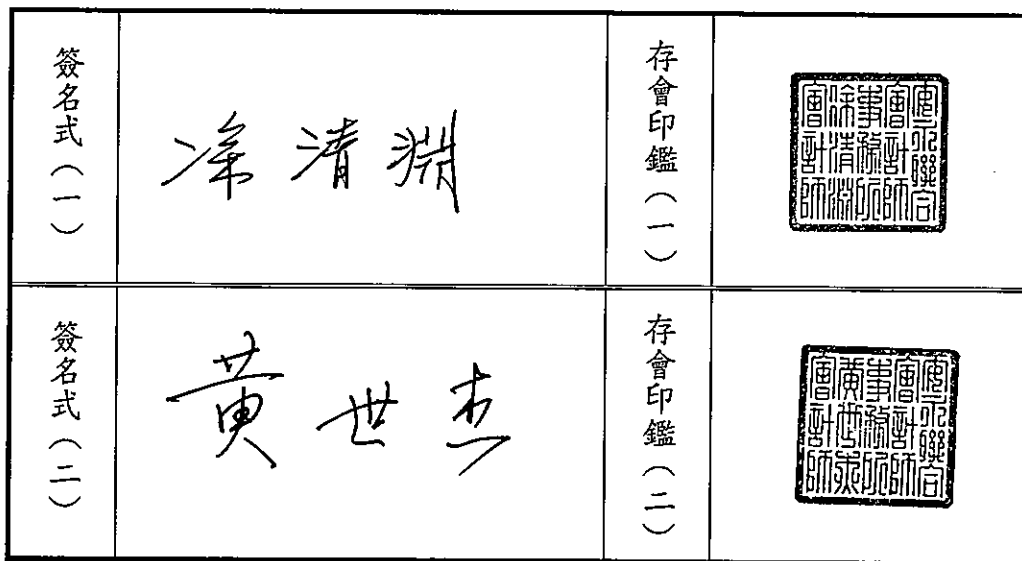 簽名式(一)
涂清淵
存會印鑑(一)
安永聯合
會計師
事務所
涂清淵
會計師
簽名式(二)
黃世杰
存會印鑑(二)
安永聯合
會計師
事務所
黃世杰
會計師